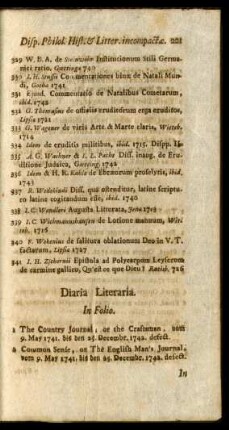 Disp. Philol. Hist. & Litter. incompactæ. 221
329 W. B. A. de Institutionum Stili Germanici
ratio, 740
330 J. H. Commentationes binæ de Natali Mundi,
Gotha 1741
331 Ejusd. Commentatio de Natalibus Cometarum,
ibid. 1742
332 G. Thomasius de officiis eruditorum erga eruditos,
Lipsiæ 1721
333 G. Wagener de viris Arte & Marte claris,
1714
334 Idem de eruditis militibus, ibid. 1715. Dispp. II.
335 A. G. & J. E. Diss. inaug. de Eruditione
Judaica, 1742
336 Idem & H. R. de Ebræorum proselytis, ibid,
1743
337 R. Diss. qua ostenditur, latine scripturo
latine cogitandum esse, ibid. 1740
338 J. C. Augusta Litterata, Jena
339 J. C. de Lotione manuum,
1716
340 F. de salitura oblationum Deo in V. T.
factarum, Lipsiæ 1727
341 J. H. Epistola ad Polycarpum Leyserum
de carmine gallico, Qu'est ce que Dieu? 726
Diaria Literaria.
In Folio.
1 The Country Journal, or the Craftsman, vom
9. May 1741. bis den 25. Decembr. 1742. defect.
2 Common Sense, or The English Man's Journal,
vom 9. May 1741. bis den 25. Decembr. 1742. defect.
In